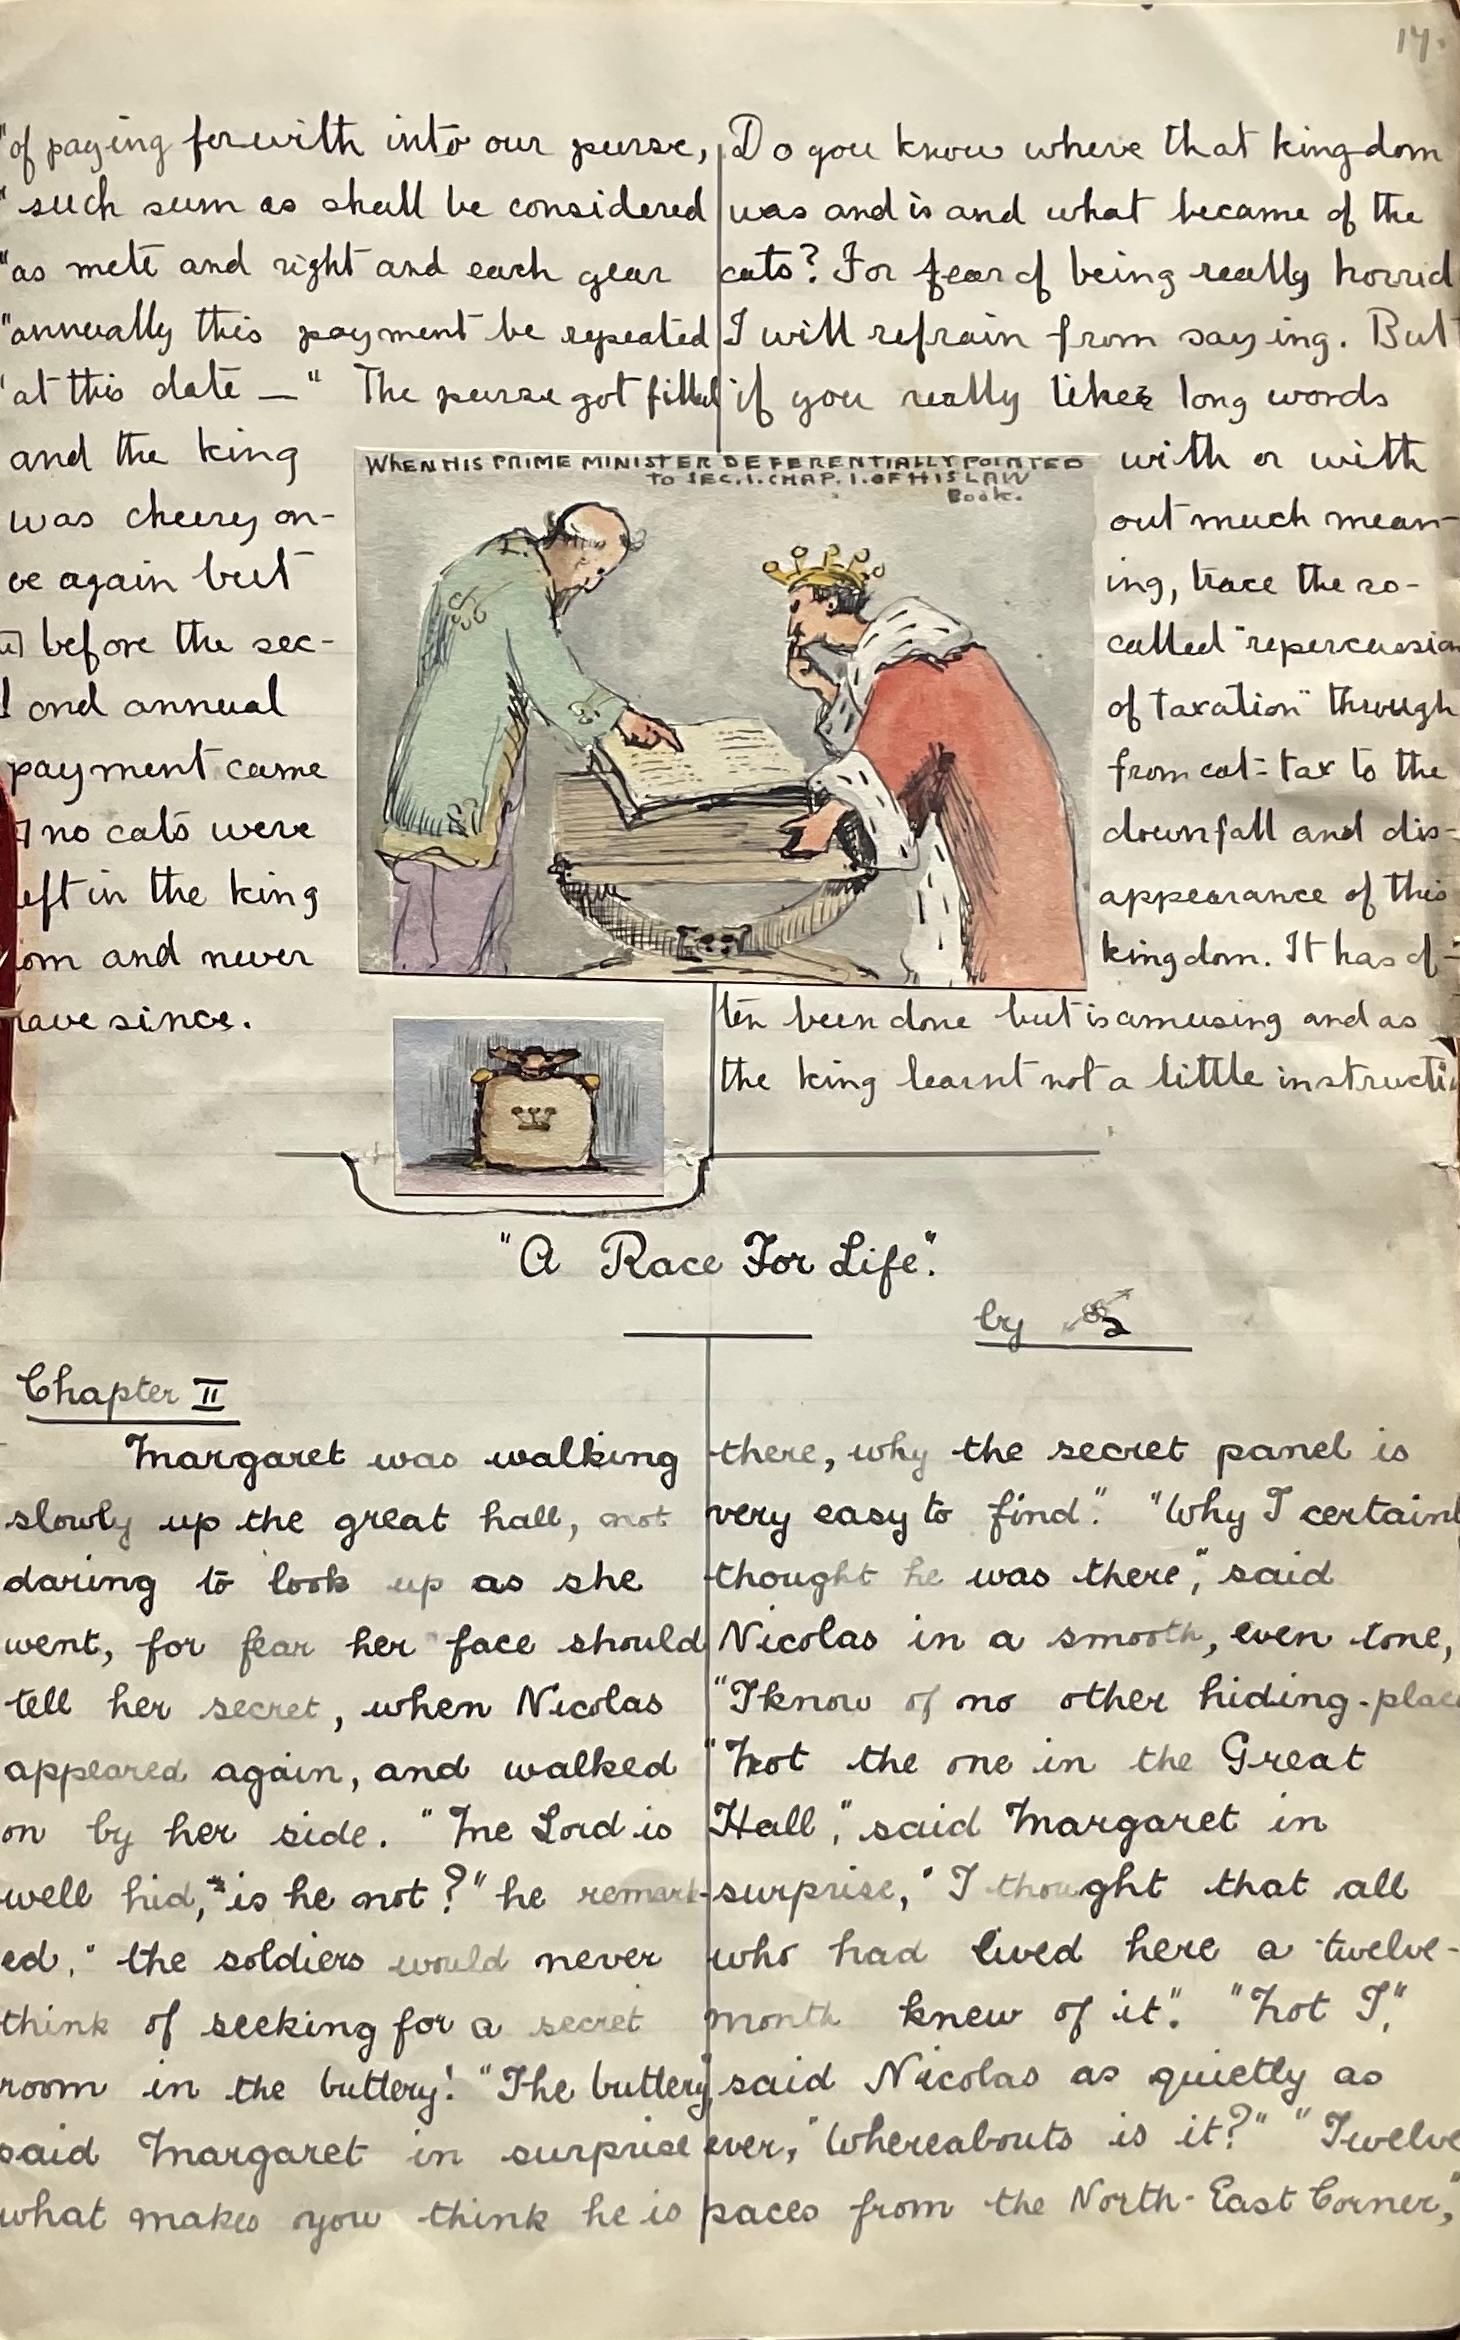 17.
"of paying forwith into our purse,
"such sum as shall be considered
"as mete and right and each year
"annually this payment be repeated
"at this date —" The purse got filled
and the king
was cheery on-
ce again but
before the sec-
ond annual
payment came
no cats were
eft in the king
om and never
ave since.
WHEN HIS PRIME MINISTER DEFERENTIALLY POINTED
TO SEC. I. CHAP. I. OF HIS LAW
BOOK.
Do you know where that kingdom
was and is and what became of the
cats? For fear of being really horrid
I will refrain from saying. But
if you really like long words
with or with
out much mean-
ing, trace the so-
called "repercussion
of taxation" through
from cat-tax to the
downfall and dis-
appearance of this
kingdom. It has of-
ten been done but is amusing and as
the king learnt not a little instructi
"A Race For Life".
by
Chapter II
Margaret was walking
slowly up the great hall, not
daring to look up as she
went, for fear her face should
tell her secret, when Nicolas
appeared again, and walked
on by her side. "Me Lord is
well hid, is he not?" he remark-
ed, "the soldiers would never
think of seeking for a secret
room in the buttery." "The buttery"
said Margaret in surprise
what makes you think he is
there, why the secret panel is
very easy to find". "Why I certainl
thought he was there", said
Nicolas in a smooth, even tone,
"I know of no other hiding-place
"Not the one in the Great
Hall", said Margaret in
surprise, "I thought that all
who had lived here a twelve-
month knew of it". "Not I",
said Nicolas as quietly as
ever, "Whereabouts is it?" "Twelve
paces from the North-East Corner,"